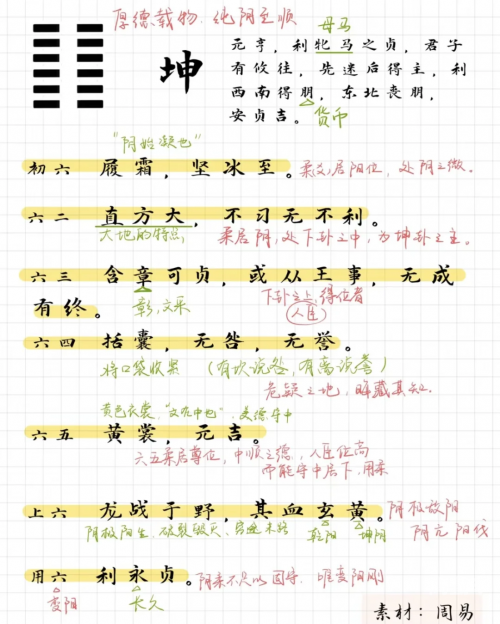 厚德载物 纯阴至顺
母马
坤
元亨，利牝马之贞，君子
有攸往，先迷后得主，利
西南得朋，东北丧朋，
安贞吉。
货币
"阴始凝也"
初六 履霜，坚冰至。
柔爻居阳位，处阴之微。
六二 直方大，不习无不利。
大地的特点
柔居阴，处下卦之中，为坤卦之主。
六三 含章可贞，或从王事，无成
有终。
彰，文采
下卦之上，得位者
人臣
六四 括囊，无咎，无誉。
将口袋收紧
（有坎说咎，有离说誉）
危疑之地，晦藏其知。
黄色衣裳，"文在中也"，文德守中
六五 黄裳，元吉。
六五柔居尊位，中顺之德，人臣位高
而能守中居下，用柔
上六 龙战于野，其血玄黄。
阴极敌阳
阴极阳生 破裂毁灭、穷途末路
乾阳
坤阴
阴亢阳伐
用六 利永贞。
阴柔不足以固守，唯变阳刚
变阳
长久
素材：周易